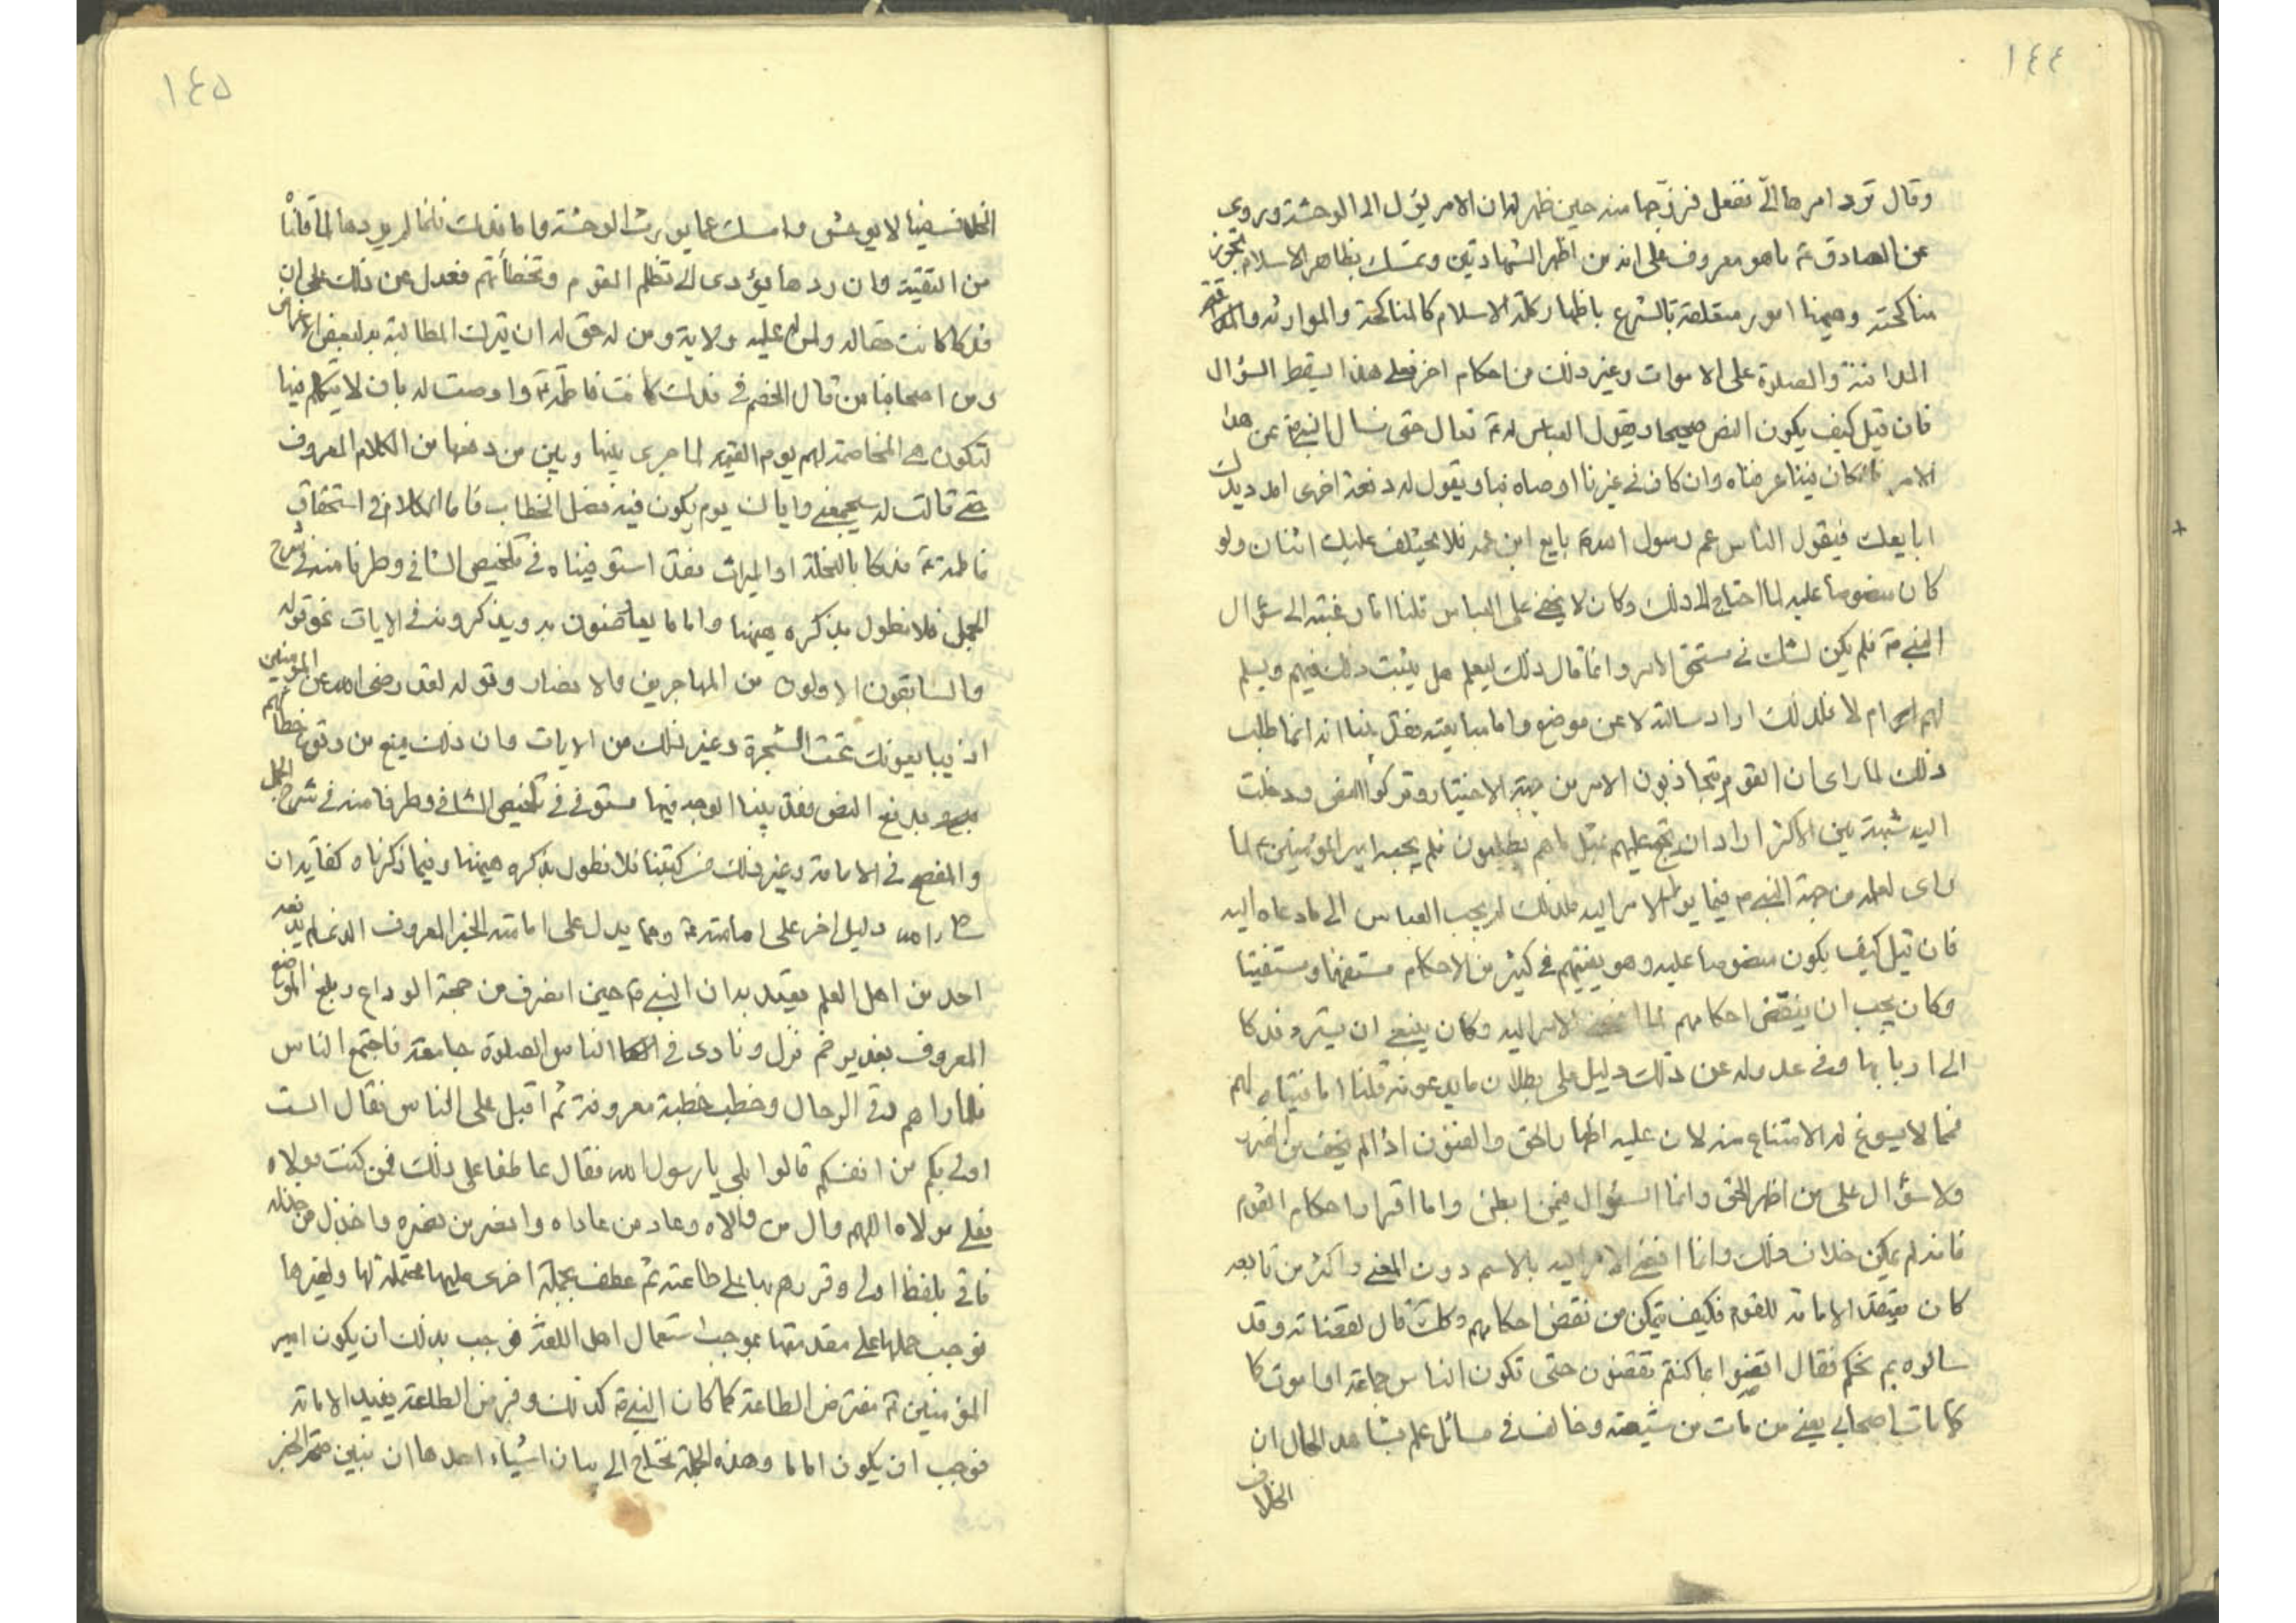 ١٤٤
وقال ترد امرها الّي ففعل فزوّجها منه حين ظهر له ان الامر يؤل الى الوحشة وروي
عن الصادق ع ما هو معروف على انه من اظهر الشهادتين وتمسك بظاهر الاسلام يجوز
مناكحته وهيهنا امور متعلقة بالشرع باظهار كلمة الاسلام كالمناكحة والموارثة و
المدافنة والصلوة على الاموات وغير ذلك من احكام اخر فعلى هذا يسقط السؤال
فان قيل كيف يكون النص صحيحا ويقول العباس له ع تعال حتى نسال النبي ص عن هذا
الامر فان كان فينا عرفناه وان كان في غيرنا اوصاه بنا ويقول له دفعة اخرى امدد يدك
ابايعك فيقول الناس عم رسول الله ص بايع ابن عمه فلا يختلف عليك اثنان ولو
كان منصوصا عليه لما احتاج الى ذلك وكان لا يخفى على العباس قلنا اما رغبته الى سؤال
النبي ص فلم يكن لشك في مستحق الامر وانما قال ذلك ليعلم هل يثبت ذلك فيهم ويسلم
لهم ام لا فلذلك اراد سالته لا عن موضع واما مبايعته فقد بينا انه انما طلب
ذلك لما راى ان القوم تجاذبون الامر من جهة الاختيار وتركوا النص ودخلت
اليه شبهة بين الاكثر اراد ان يحتج عليهم بمثل ما هم يطلبون فلم يجبه امير المؤمنين ع لما
راى لعلمه من جهة النبي ص فيما يؤل الامر اليه فلذلك لم يجب العباس الى ما دعاه اليه
فان قيل كيف يكون منصوصا عليه وهو يفتيهم في كثير من الاحكام مستفهما ومستفتيا
وكان يجب ان ينقض احكامهم لما افضى الامر اليه وكان ينبغي ان يسترد فدكا
الى اربابها وفي عدوله عن ذلك دليل على بطلان ما يدعونه قلنا اما فتياه لهم
فمما لا يسوغ له الامتناع منه لان عليه اظهار الحق والفتوى اذا لم يخف من
ولا سؤال على من اظهر الحق وانما السؤال فيمن ابطن واما اقراره احكام القوم
فانه لم يمكن خلاف ذلك وانما افضى الامر اليه بالاسم دون المعنى واكثر من تابعه
كان يعتقد الامامة للقوم فكيف يتمكن من نقض احكامهم وكك قال لقضاته وقد
سالوه بم نحكم فقال اقضوا بما كنتم تقضون حتى تكون الناس جماعة او اموت كما
كما مات اصحابي يعني من مات من شيعته وخالفه في مسائل علم بشاهد الحال ان
الخلاف
١٤٥
الخلاف فيها لا يوحش وامسك عما يورث الوحشة واما فدك فانما لم يردها لما قلنا
من التقية وان ردها يؤدي الى تظلم القوم وتخطأتهم فعدل عن ذلك على ان
فدكا كانت حقا له ولمن عليه ولاية ومن له حق له ان يترك المطالبة به لبعض الاغراض
ومن اصحابنا من قال الخصم في فدك كانت فاطمة ع واوصت له بان لا يتكلم فيها
لتكون هي المخاصمة لهم يوم القيمة لما جرى بينها وبين من دفعها من الكلام المعروف
حتى قالت له سيجمعني واياك يوم يكون فيه فصل الخطاب فاما الكلام في استحقاق
فاطمة ع فدكا بالنحلة او الميراث فقد استوفيناه في تلخيص الشافي وطرفا منه في شرح
الجمل فلا نطول بذكره هيهنا واما ما يعارضون به ويذكرونه في الايات نحو قوله
والسابقون الاولون من المهاجرين والانصار وقوله لقد رضى الله عن المؤمنين
اذ يبايعونك تحت الشجرة وغير ذلك من الايات وان ذلك يمنع من وقوع خطا منهم
بدفع النص فقد بينا الوجه فيها مستوفى في تلخيص الشافي وطرفا منه في شرح الجمل
والمفصح في الامامة وغير ذلك من كتبنا فلا نطول بذكره هيهنا وفيما ذكرناه كفاية ان
شاء الله دليل اخر على امامته ع ومما يدل على امامته الخبر المعروف الذي لم يدفعه
احد من اهل العلم يعتد به ان النبي ص حين انصرف من حجة الوداع وبلغ الموضع
المعروف بغدير خم نزل ونادى في الناس الصلوة جامعة فاجتمع الناس
فلما راهم في الرحال وخطب خطبة معروفة ثم اقبل على الناس فقال الست
اولى بكم من انفسكم قالوا بلى يا رسول الله فقال عاطفا على ذلك فمن كنت مولاه
فعلي مولاه اللهم وال من والاه وعاد من عاداه وانصر من نصره واخذل من خذله
فاتى بلفظ اولى وقررهم بها على طاعته ثم عطف بجملة اخرى عليها محتملة لها ولغيرها
فوجب حملها على مقدمتها بموجب استعمال اهل اللغة فوجب بذلك ان يكون امير
المؤمنين ع مفترض الطاعة كما كان النبي ص كذلك وفرض الطاعة يفيد الامامة
فوجب ان يكون اماما وهذه الجملة تحتاج الى بيان اشياء احدها ان نبين صحة الخبر